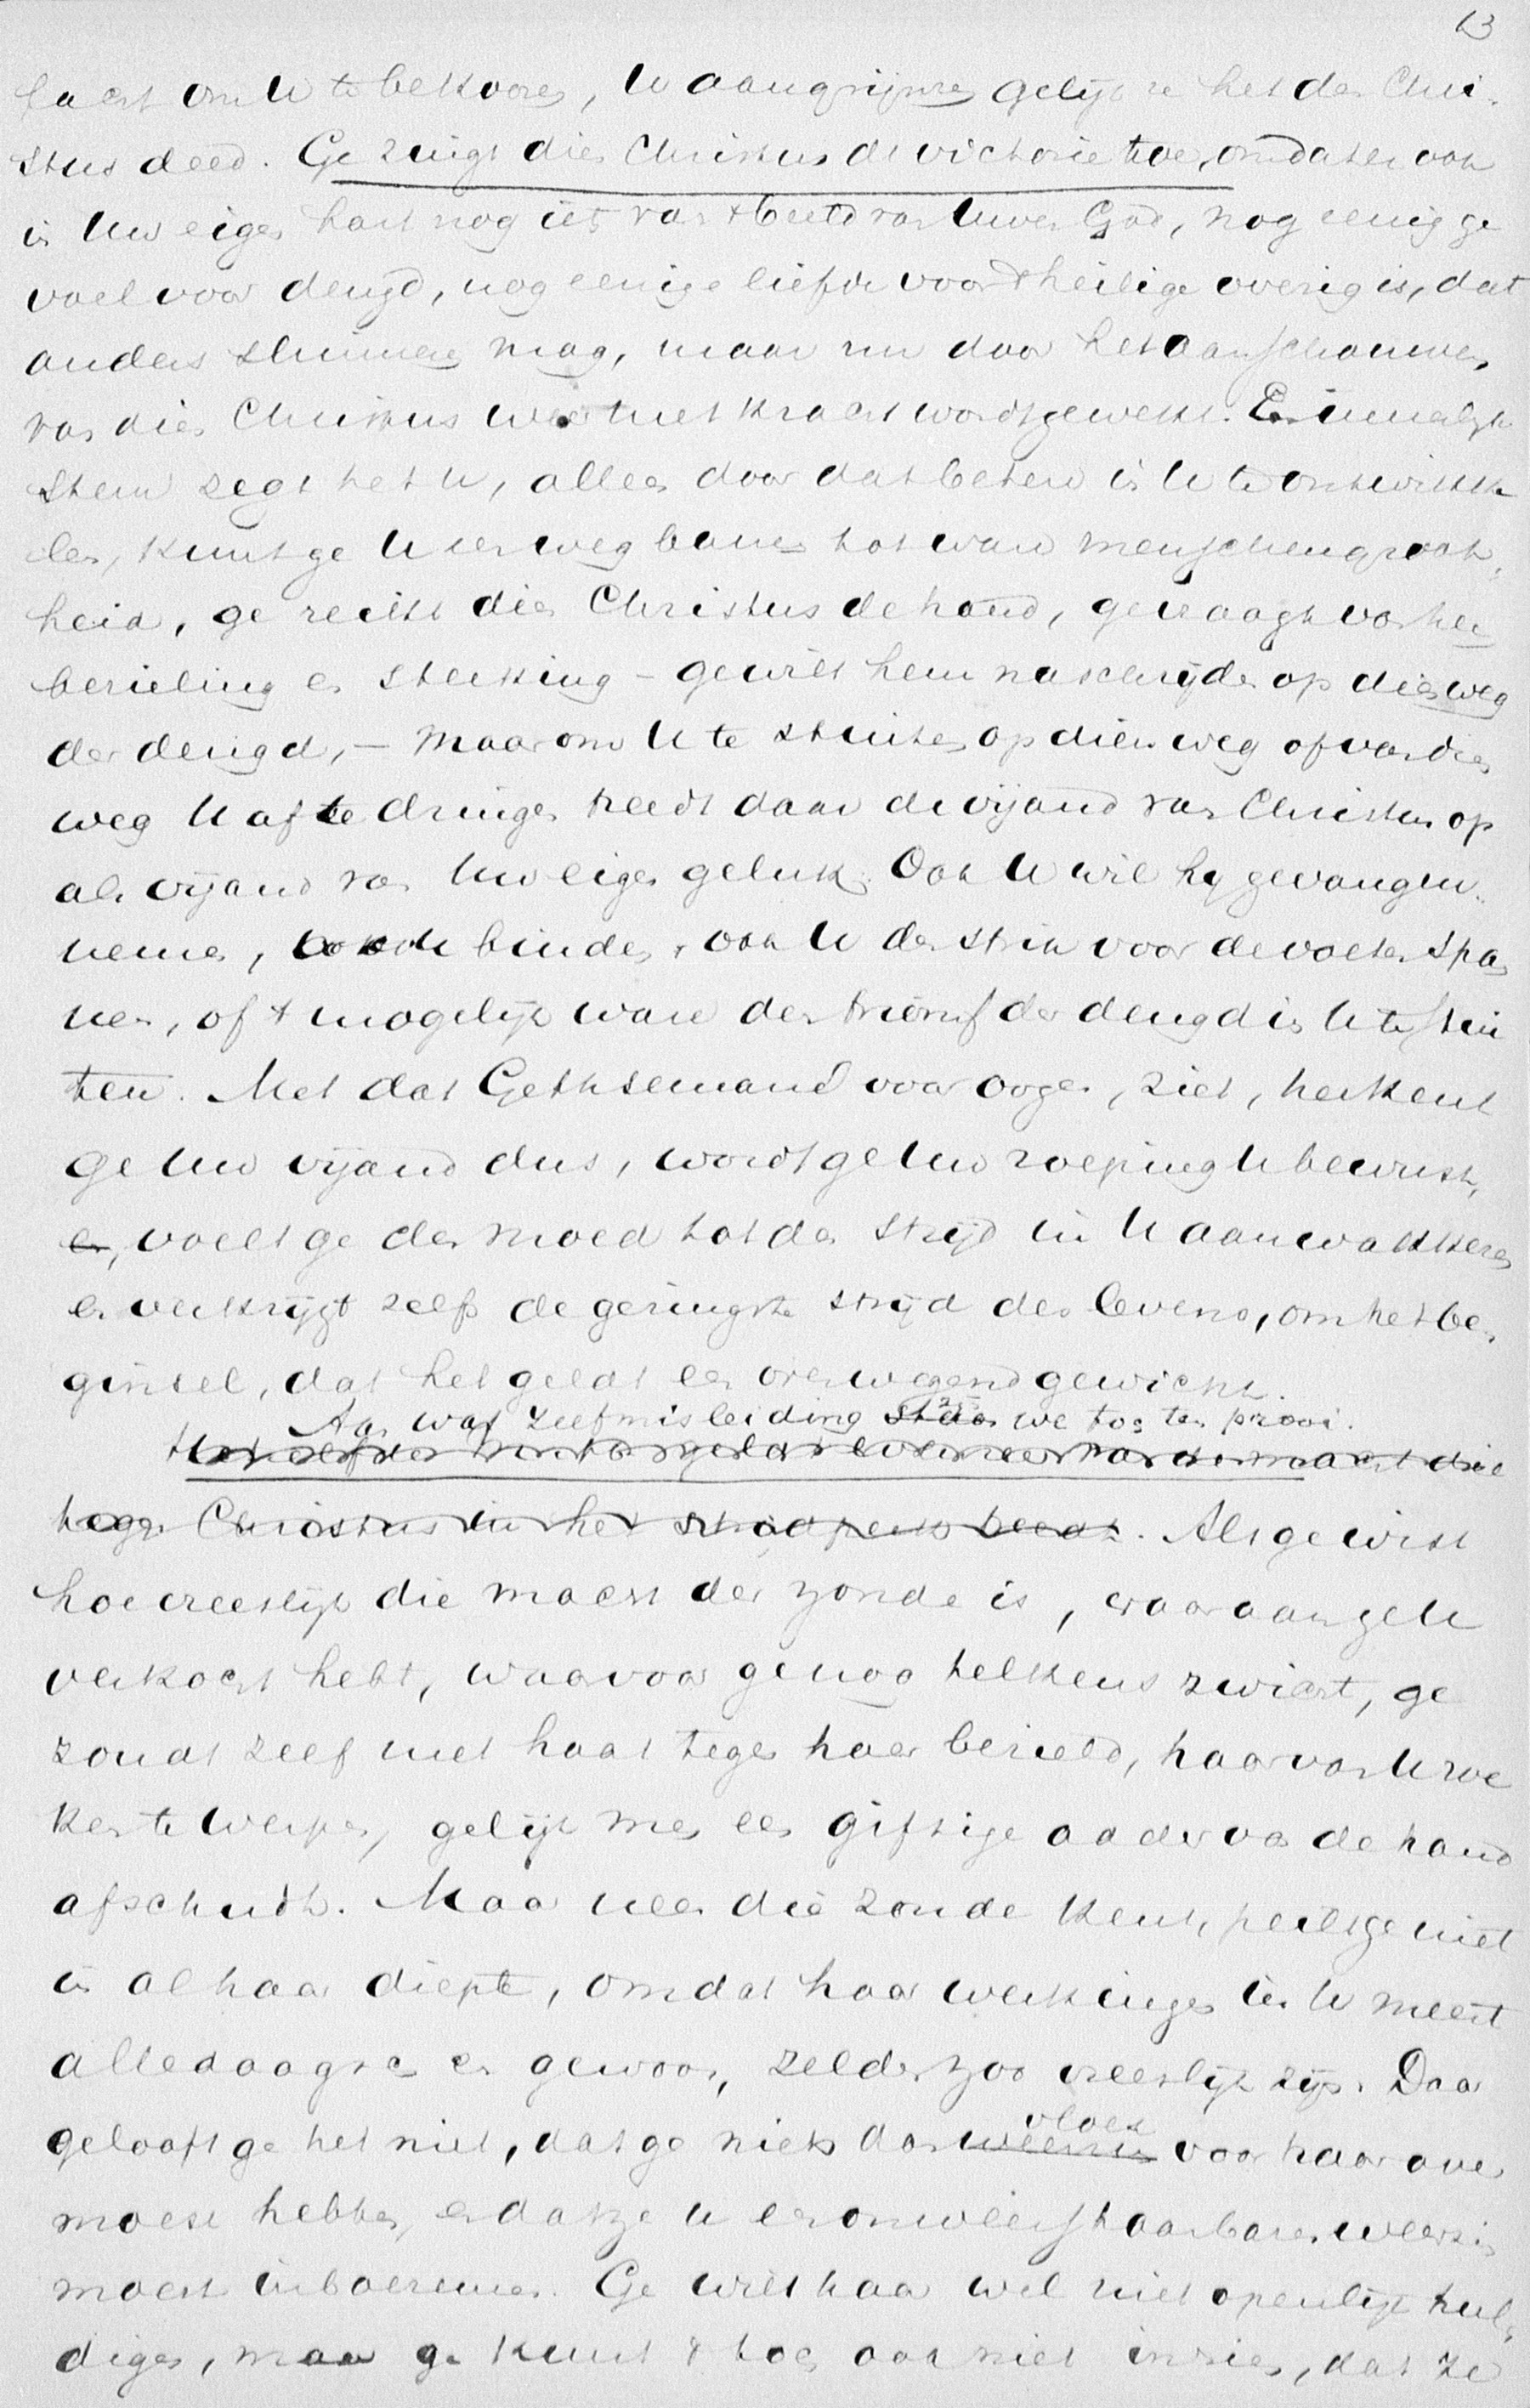 13
kracht om U te bekooren, U aangrijpen gelijk u het den Chri-
stus deed. Ge zingt dien Christus de victorie toe, omdat er ook
in Uw eigen hart nog iets van 't beeld van Uwen God, nog eenig ge
voel voor deugd, nog eenige liefde voor 't heilige overig is, dat
anders sluimeren mag, maar nu door het aanschouwen
van dien Christus weer met kracht wordt gewekt. Een innerlijke
stem zegt het U, alleen door dat betere in U te ontwikke
len, kunt ge U een weg banen tot ware menschengroot-
heid, ge reikt dien Christus de hand, ge vraagt van hem
bezieling en sterking - ge wilt hem naschrijden op dien weg
der deugd, - maar om U te stuiten op dien weg of van dien
weg U af te dringen treedt daar de vijand van Christus op
als vijand van Uw eigen geluk. Ook U wil hij gevangen
nemen, ook U binden, ook U den strik voor de voeten span
nen, of 't mogelijk ware den triomf der deugd in U te stui
ten. Met dat Gethsemané voor oogen, ziet, herkent
ge Uw vijand dus, wordt ge Uw roeping U bewust,
en, voelt ge den moed tot den strijd in U aanwakkeren
en verkrijgt zelfs de geringste strijd des levens, om het be-
ginsel, dat het geldt een overwegend gewicht.
Aan wat zelfmisleiding zijn we toch ten prooi.
tegen Christus in het strijdperk treedt. Als ge wist
hoe vreeslijk die macht der zonde is, waaraan ge U
verkocht hebt, waarvoor ge nog telkens zwicht, ge
zoudt zelf met haat tegen haar bezield, haar van U we
ten te werpen, gelijk men een giftige adder van de hand
afschudt. Maar neen die zonde kent, peilt ge niet
in al haar diepte, omdat haar werkingen in U meest
alledaagsch en gewoon, zelden zoo vreeslijk zijn. Daar
gelooft ge het niet, dat ge niets dan vloek voor haar over
moest hebben, en dat ze U een onweerstaanbaren weerzin
moest inboezemen. Ge wilt haar wel niet openlijk hul-
digen, maar ge kunt 't toch ook niet inzien, dat ze